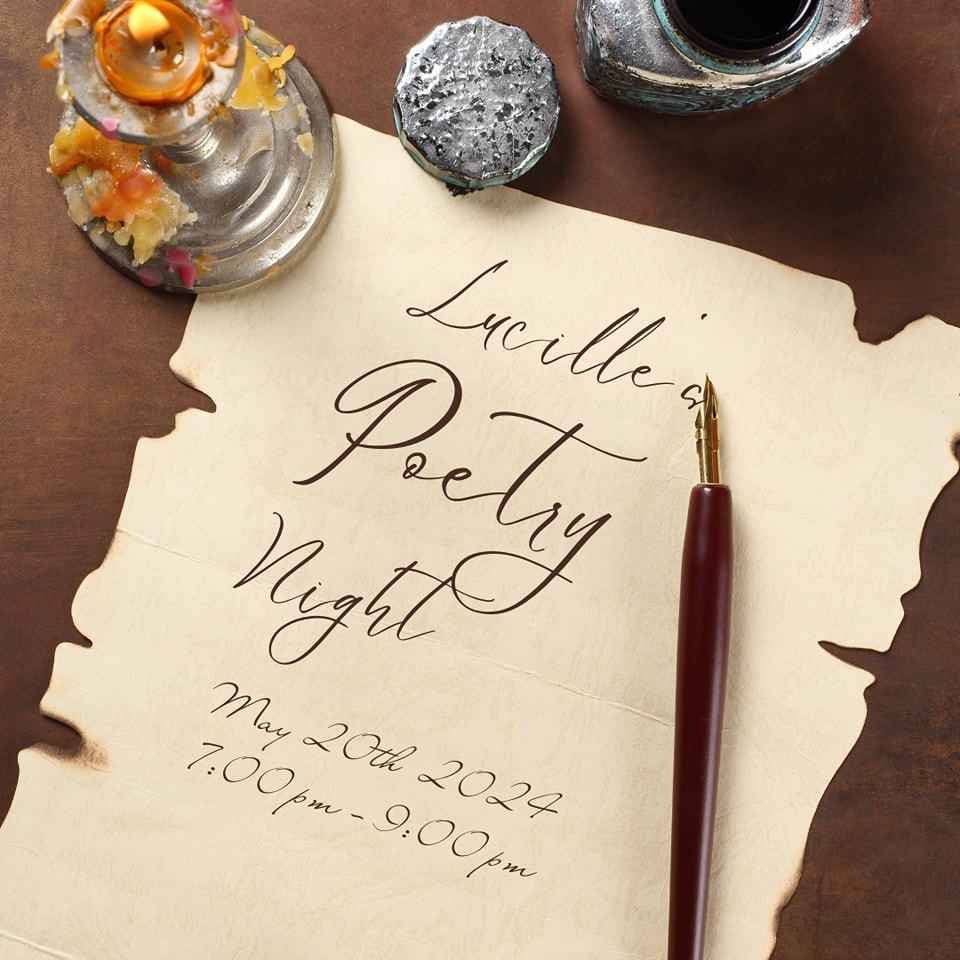 Lucille's
Poetry
Night
May 20th 2024
7:00 pm - 9:00 pm